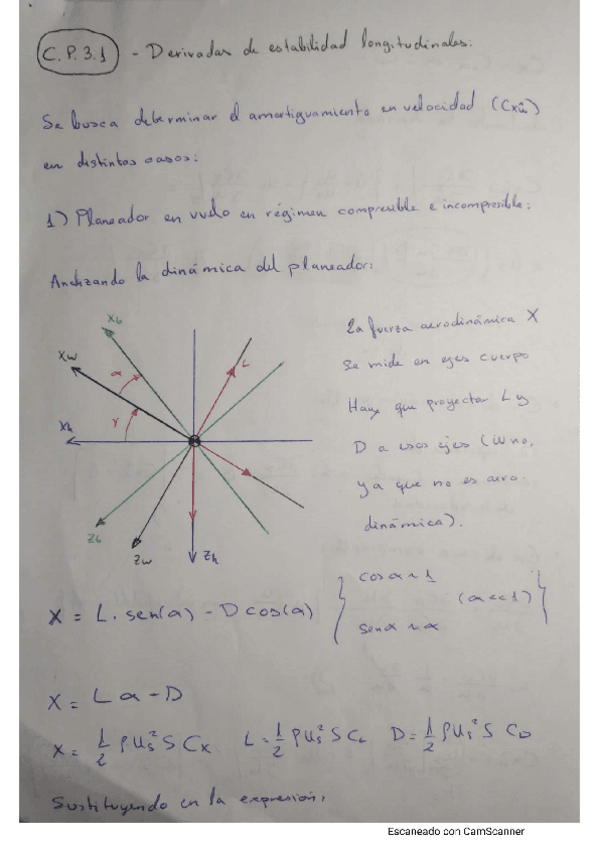 C.P.3.1 - Derivadas de estabilidad longitudinales:
Se busca determinar el amortiguamiento en velocidad (Cxû)
en distintos casos:
1) Planeador en vuelo en régimen compresible e incompresible:
Analizando la dinámica del planeador:
Xb
Xw
α
L
γ
Xh
Zb
Zw
Zh
La fuerza aerodinámica X
se mide en ejes cuerpo
Hay que proyectar L y
D a esos ejes (W no,
ya que no es aero-
dinámica).
X = L. sen(α) - D cos(α) { cos α ~ 1
sen α ~ α (α << 1) }
X = L α - D
X = 1/2 ρ Us² S Cx L = 1/2 ρ Us² S CL D = 1/2 ρ Us² S CD
Sustituyendo en la expresión:
Escaneado con CamScanner